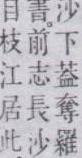 沙下葢奪羅
書。前志長沙
自枝江居此